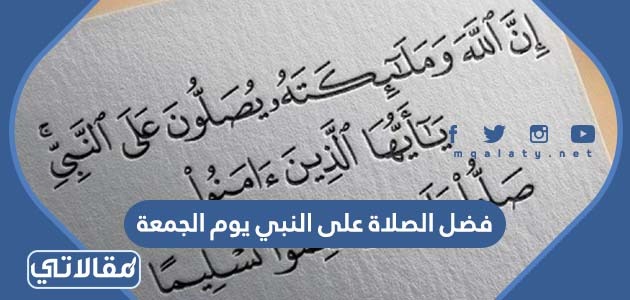 إِنَّ ٱللَّهَ وَمَلَٰٓئِكَتَهُۥ يُصَلُّونَ عَلَى ٱلنَّبِيِّۚ
يَٰٓأَيُّهَا ٱلَّذِينَ ءَامَنُوا۟
mqalaty.net
فضل الصلاة على النبي يوم الجمعة
تَسْلِيمًا
مقالاتي